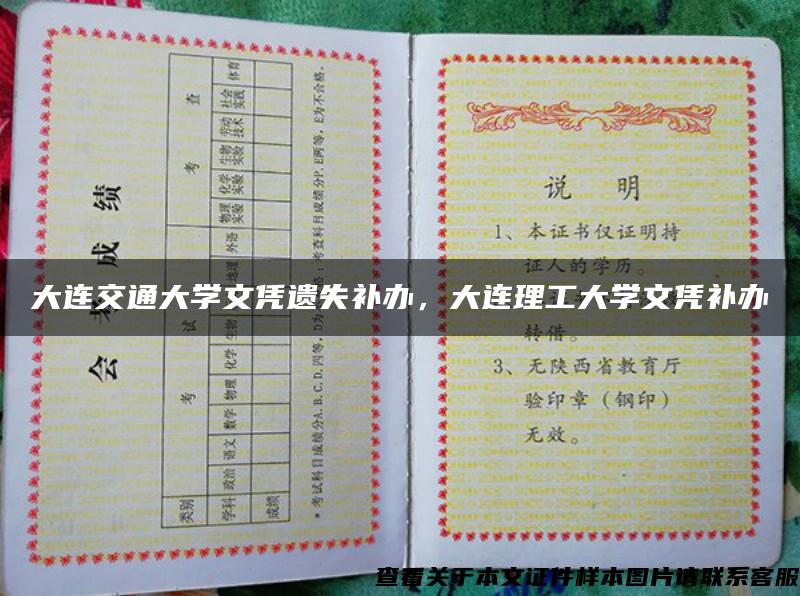 会考成绩
类别 考试 考查
学科 政治 语文 数学 物理 化学 生物 地理 外语 物理实验 化学实验 生物实验 劳动技术 社会实践 体育
成绩
*考试科目成绩分A.B.C.D.四等，D为 考查科目成绩分P、E两等，E为不合格。
说 明
1、本证书仅证明持
证人的学历。
大连交通大学文凭遗失补办，大连理工大学文凭补办
转借。
3、无陕西省教育厅
验印章（钢印）
无效。
查看关于本文证件样本图片请联系客服